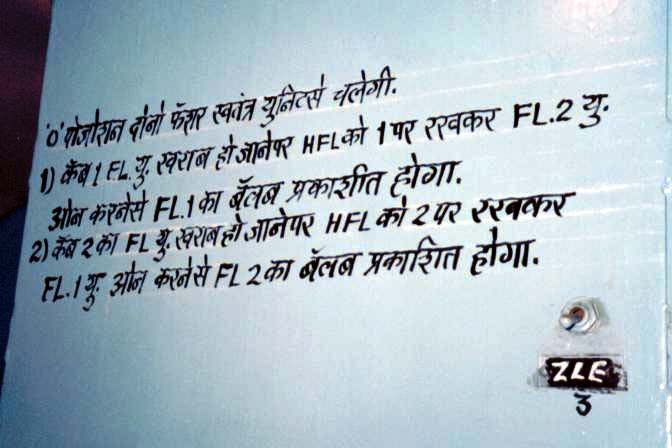 '0' पोजीशन दोनो फ्लॅशर स्वतंत्र युनिटसे चलेगी.
1) कॅब 1 FL. यु. खराब हो जानेपर HFL को 1 पर रखकर FL.2 यु.
ऑन करनेसे FL.1 का बॅलब प्रकाशीत होगा.
2) कॅब 2 का FL यु. खराब हो जानेपर HFL को 2 पर रखकर
FL.1 यु. ऑन करनेसे FL 2 का बॅलब प्रकाशित होगा.
ZLE
3